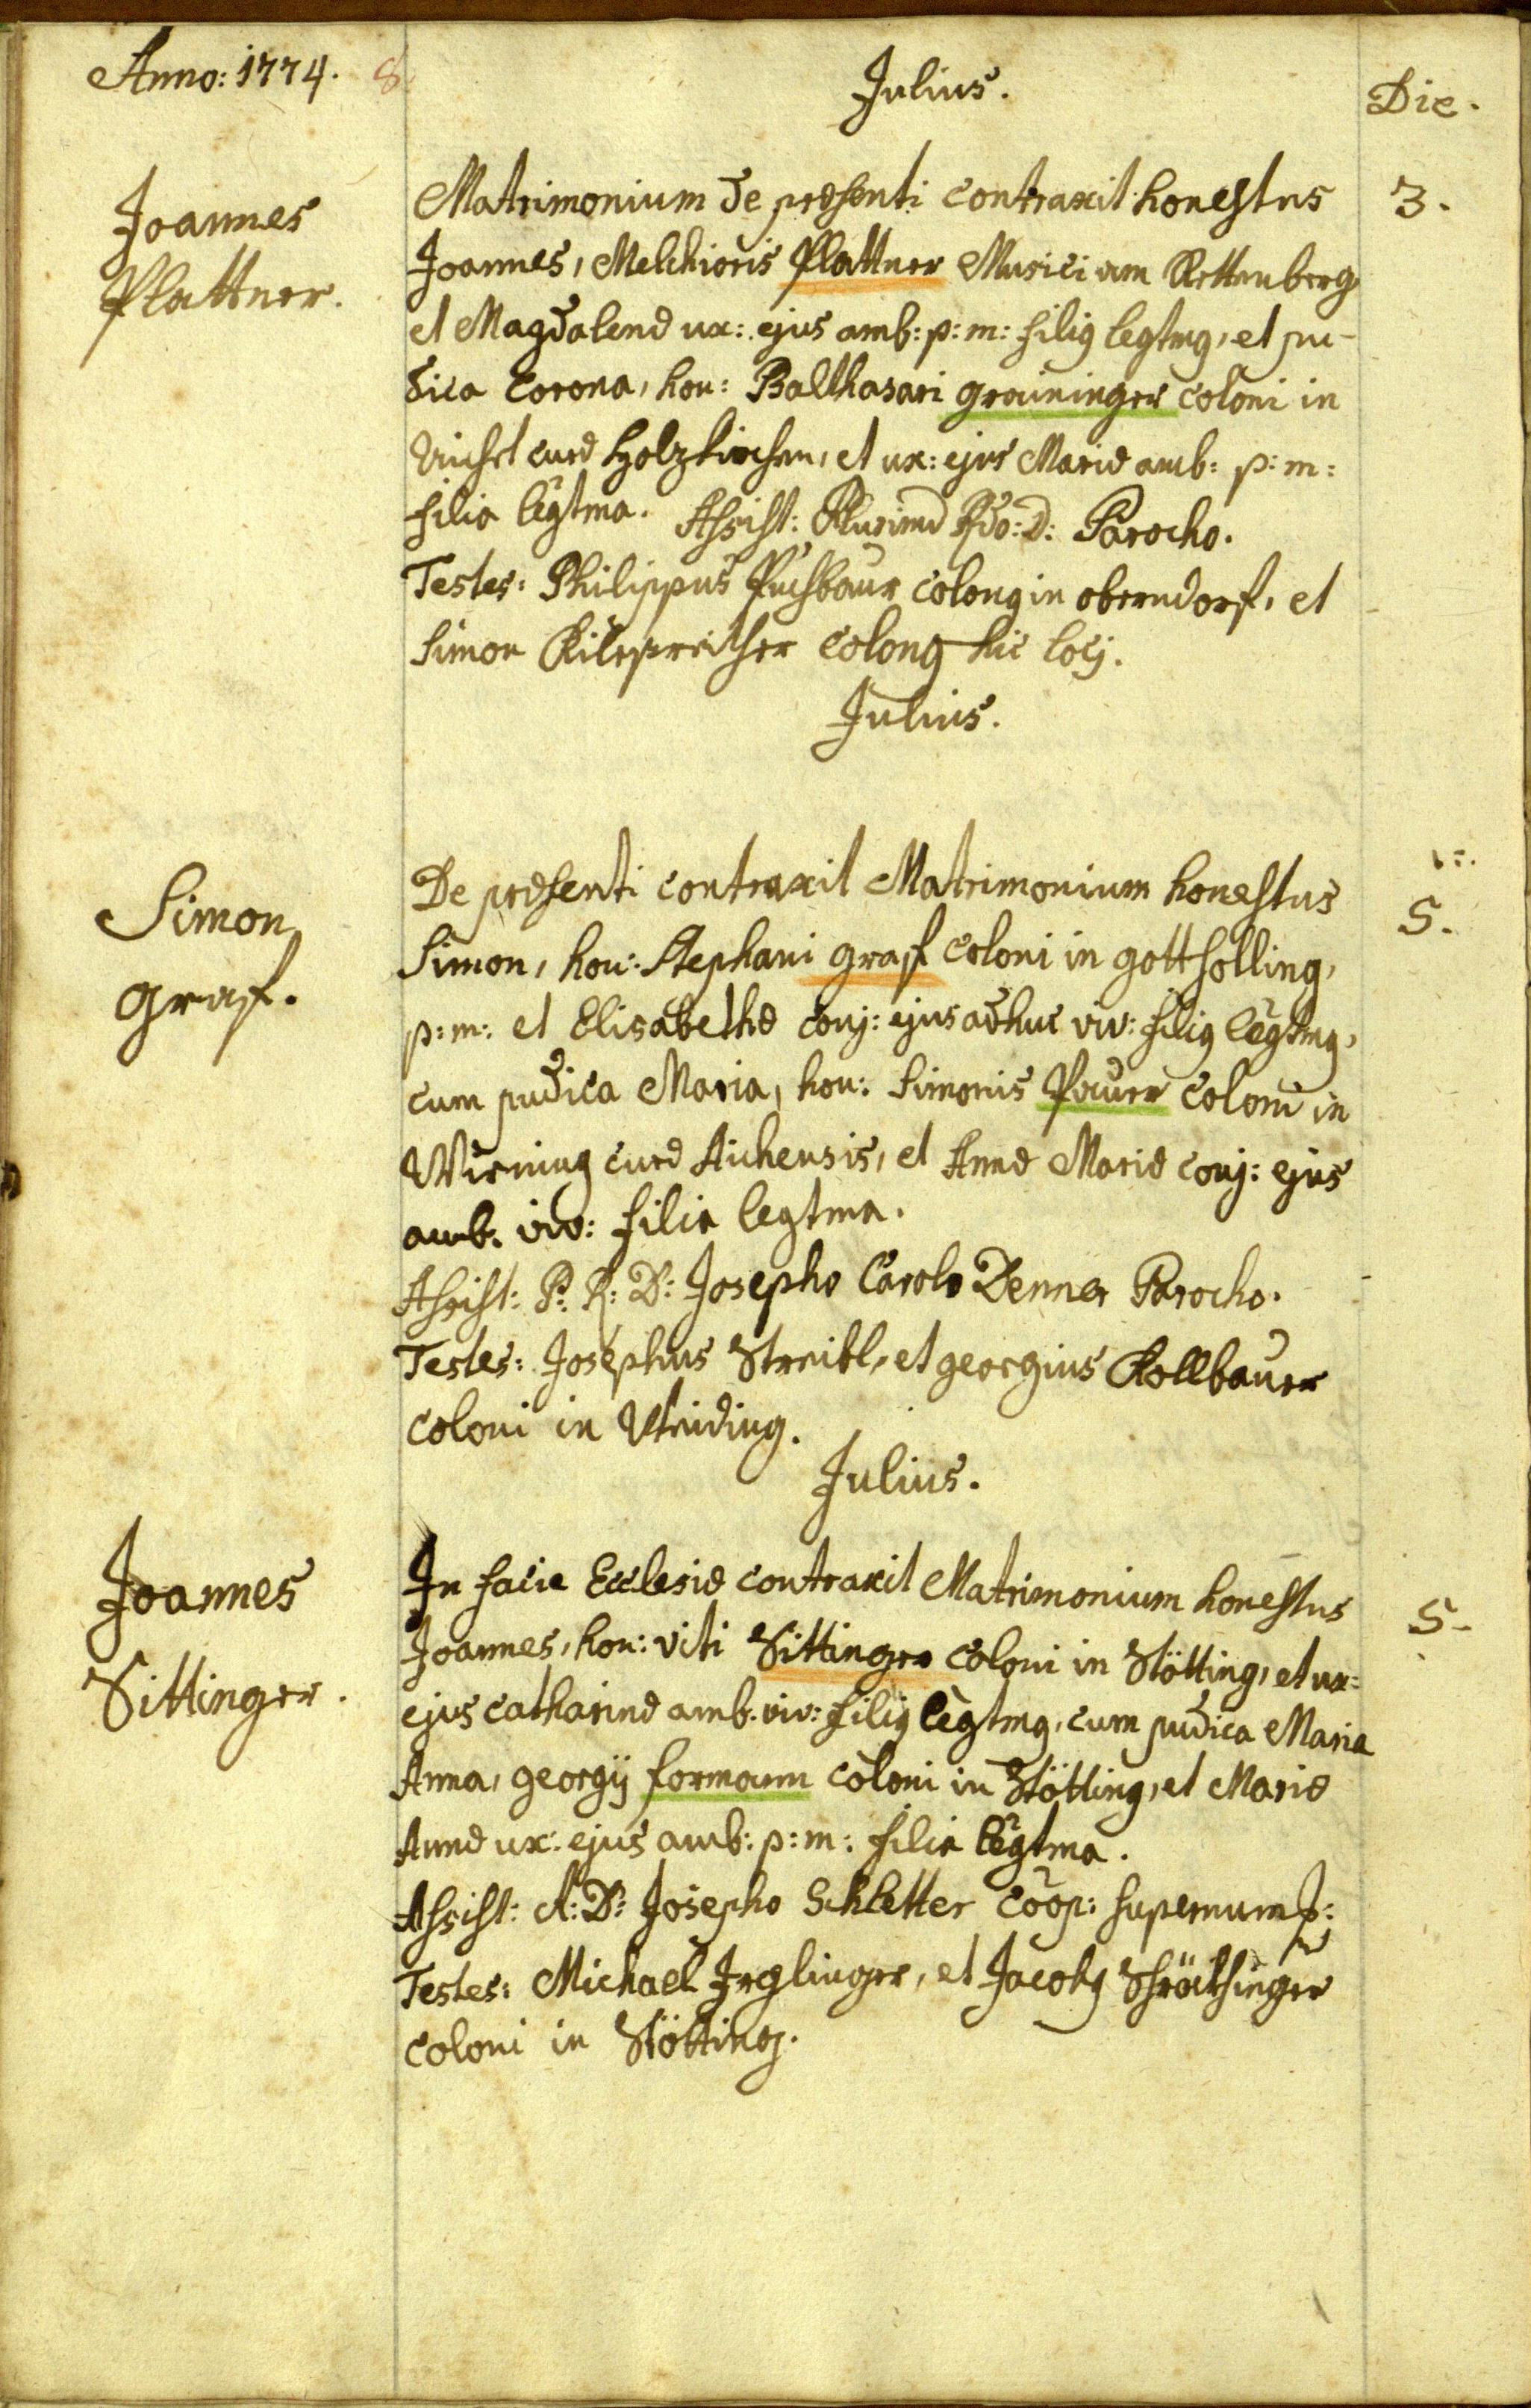 Anno: 1774. 8
Julius.
Die.
Joannes
Plattner.
Matrimonium de præsenti contraxit honestus
3.
Joannes, Melchioris Plattner Musici am Rettenberg
et Magdalenæ ux: ejus amb: p: m: filiꝰ legtmꝰ, et pu-
dica Corona, hon: Balthasari graininger coloni in
curæ Holzkirchen, et ux: ejus Mariæ amb: p: m:
filia legtma. Assist: Plurimū Rdo: D: Parocho.
Testes: Philippus Puchbaur colonꝰ in oberndorf, et
Simon colonꝰ hic locj.
Julius.
Simon
graf.
De præsenti contraxit Matrimonium honestus
5.
Simon, hon: Stephani graf coloni in gottholling,
p: m: et Elisabethæ conj: ejus adhuc viv: filiꝰ legtmꝰ,
cum pudica Maria, hon: Simonis Paur coloni in
Wirning curæ Aichensis, et Annæ Mariæ conj: ejus
amb. viv: filia legtma.
Assist: P: R: D: Josepho Carolo Denner Parocho.
Testes: Josephus Streibl, et georgius Kollbauer
coloni in
Julius.
Joannes
Sittinger.
In facie Ecclesiæ contraxit Matrimonium honestus
5.
Joannes, hon: viti Sittinger coloni in Stötting, et ux:
ejus catharinæ amb. viv: filiꝰ legtmꝰ, cum pudica Maria
Anna, georgij formann coloni in Stötting, et Mariæ
Annæ ux: ejus amb: p: m: filia legtma.
Assist: A: D: Josepho Schletter coop: supernum:
Testes: Michael Irglinger, et Jacobꝰ
coloni in Stötting.